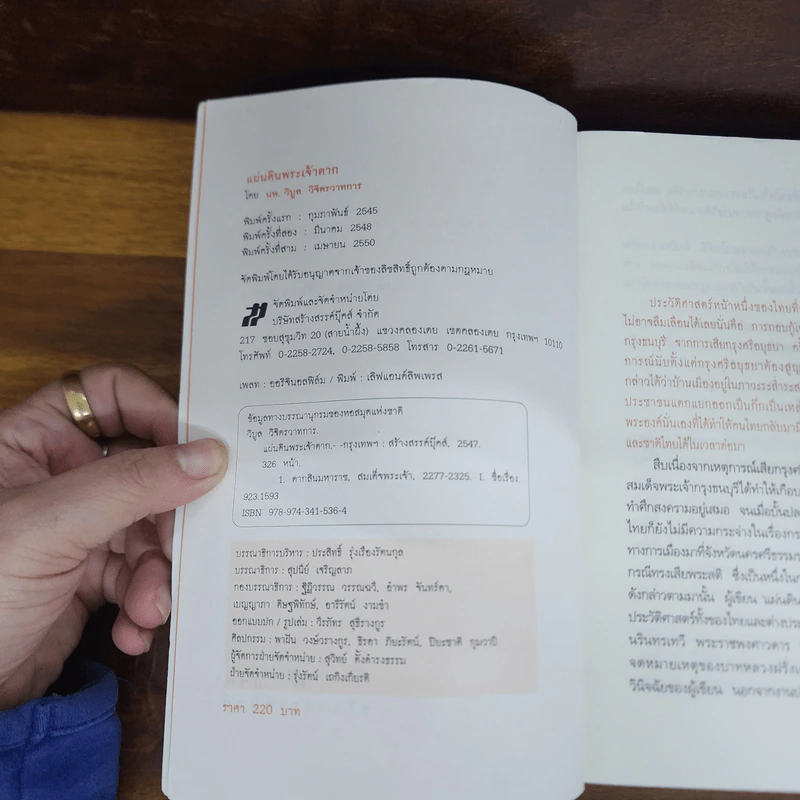 แผ่นดินพระเจ้าตาก
โดย นพ. วิบูล วิจิตรวาทการ
พิมพ์ครั้งแรก : กุมภาพันธ์ 2545
พิมพ์ครั้งที่สอง : มีนาคม 2548
พิมพ์ครั้งที่สาม : เมษายน 2550
จัดพิมพ์โดยได้รับอนุญาตจากเจ้าของลิขสิทธิ์ถูกต้องตามกฎหมาย
จัดพิมพ์และจัดจำหน่ายโดย
บริษัทสร้างสรรค์บุ๊คส์ จำกัด
217 ซอยสุขุมวิท 20 (สายน้ำผึ้ง) แขวงคลองเตย เขตคลองเตย กรุงเทพฯ 10110
โทรศัพท์ 0-2258-2724, 0-2258-5858 โทรสาร 0-2261-5671
เพลท : ออริจินอลฟิล์ม / พิมพ์ : เลิฟแอนด์ลิพเพรส
ข้อมูลทางบรรณานุกรมของหอสมุดแห่งชาติ
วิบูล วิจิตรวาทการ.
แผ่นดินพระเจ้าตาก.- -กรุงเทพฯ : สร้างสรรค์บุ๊คส์, 2547.
326 หน้า.
1. ตากสินมหาราช, สมเด็จพระเจ้า, 2277-2325. I. ชื่อเรื่อง.
923.1593
ISBN 978-974-341-536-4
บรรณาธิการบริหาร : ประสิทธิ์ รุ่งเรืองรัตนกุล
บรรณาธิการ : สุปนีย์ เจริญลาภ
กองบรรณาธิการ : ฐิฏิวรรณ วรรณฉวี, อำพร จันทร์ดา,
เบญญาภา ดิษฐพิทักษ์, อารีรัตน์ งามขำ
ออกแบบปก / รูปเล่ม : วีรภัทร สุธีรางกูร
ศิลปกรรม : พาฝัน วงษ์วรางกูร, ธิรดา ภิยะรัตน์, ปิยะชาติ กุมวาปี
ผู้จัดการฝ่ายจัดจำหน่าย : สุวิทย์ ตั้งดำรงธรรม
ฝ่ายจัดจำหน่าย : รุ่งรัตน์ เถกิงเกียรติ
ราคา 220 บาท
ประวัติศาสตร์หน้าหนึ่งของไทยที่
ไม่อาจลืมเลือนได้เลยนั่นคือ การกอบกู้
กรุงธนบุรี จากการเสียกรุงศรีอยุธยา
การณ์นับตั้งแต่กรุงศรีอยุธยาต้อง
กล่าวได้ว่าบ้านเมืองอยู่ในภาวะระส่ำระ
ประชาชนแตกแยกออกเป็นก๊กเป็น
พระองค์นั่นเองที่ได้ทำให้คนไทยกลับมา
และชาติไทยได้ในเวลาต่อมา
สืบเนื่องจากเหตุการณ์เสียกรุงศรี
สมเด็จพระเจ้ากรุงธนบุรีได้ทำให้เกือบ
ทำศึกสงครามอยู่เสมอ จนเมื่อบั้นปล
ไทยก็ยังไม่มีความกระจ่างในเรื่อง
ทางการเมืองมาที่จังหวัดนครศรีธรรม
กรณีทรงเสียพระสติ ซึ่งเป็นหนึ่งใน
ดังกล่าวตามมานั้น ผู้เขียน แผ่นดิน
ประวัติศาสตร์ทั้งของไทยและต่างประ
นรินทรเทวี พระราชพงศาวดาร
จดหมายเหตุของบาทหลวงฝรั่ง
วินิจฉัยของผู้เขียน นอกจากงาน